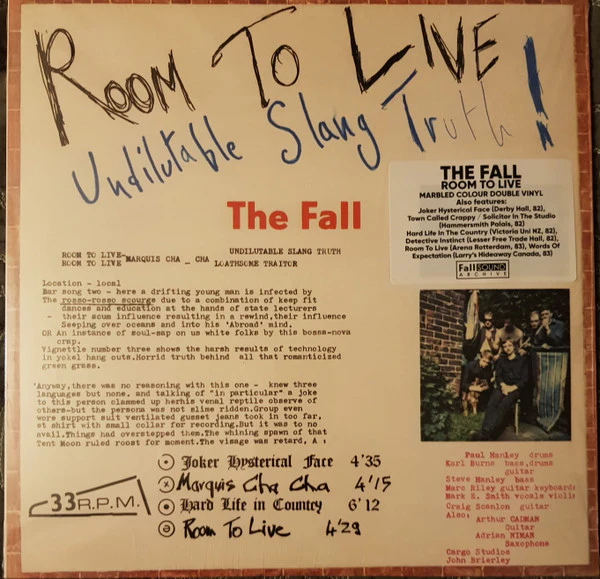 ROOM TO LIVE
Undilutable Slang Truth!
THE FALL
ROOM TO LIVE
MARBLED COLOUR DOUBLE VINYL
Also features:
Joker Hysterical Face (Derby Hall, 82),
Town Called Crappy / Solicitor In The Studio
(Hammersmith Palais, 82)
Hard Life In The Country (Victoria Uni NZ, 82),
Detective Instinct (Lesser Free Trade Hall, 82),
Room To Live (Arena Rotterdam, 83), Words Of
Expectation (Larry's Hideaway Canada, 83)
Fall SOUND
ARCHIVE
The Fall
ROOM TO LIVE- UNDILUTABLE SLANG TRUTH
ROOM TO LIVE MARQUIS CHA _ CHA LOATHSOME TRAITOR
Location - local
Bar song two - here a drifting young man is infected by
The rosso-rosso scourge due to a combination of keep fit
dances and education at the hands of state lecturers
- their scum influence resulting in a rewind, their influence
Seeping over oceans and into his 'Abroad' mind.
OR An instance of soul-sap on us white folks by this bossa-nova
crap.
Vignettle number three shows the harsh results of technology
in yokel hang outs.Horrid truth behind all that romanticized
green grass.
'Anyway,there was no reasoning with this one - knew three
languages but none, and talking of "in particular" a joke
to this person clammed up herhis venal reptile observe of
others-but the persona was not slime ridden.Group even
wore support suit ventilated gusset jeans took in too far,
et shirt with small collar for recording.But it was to no
avail.Things had overstepped them.The whining spawn of that
Tent Moon ruled roost for moment.The visage was retard, A :
33 R.P.M.
Joker Hysterical Face 4'35
Marquis Cha Cha 4'15
Hard Life in Country 6'12
Room To Live 4'29
Paul Hanley drums
Karl Burns bass,drums
guitar
Steve Hanley bass
Marc Riley guitar keyboard;
Mark E. Smith vocals violin
Craig Scanlon guitar
Also;
Arthur CADMAN
Guitar
Adrian NIMAN
Saxophone
Cargo Studios
John Brierley